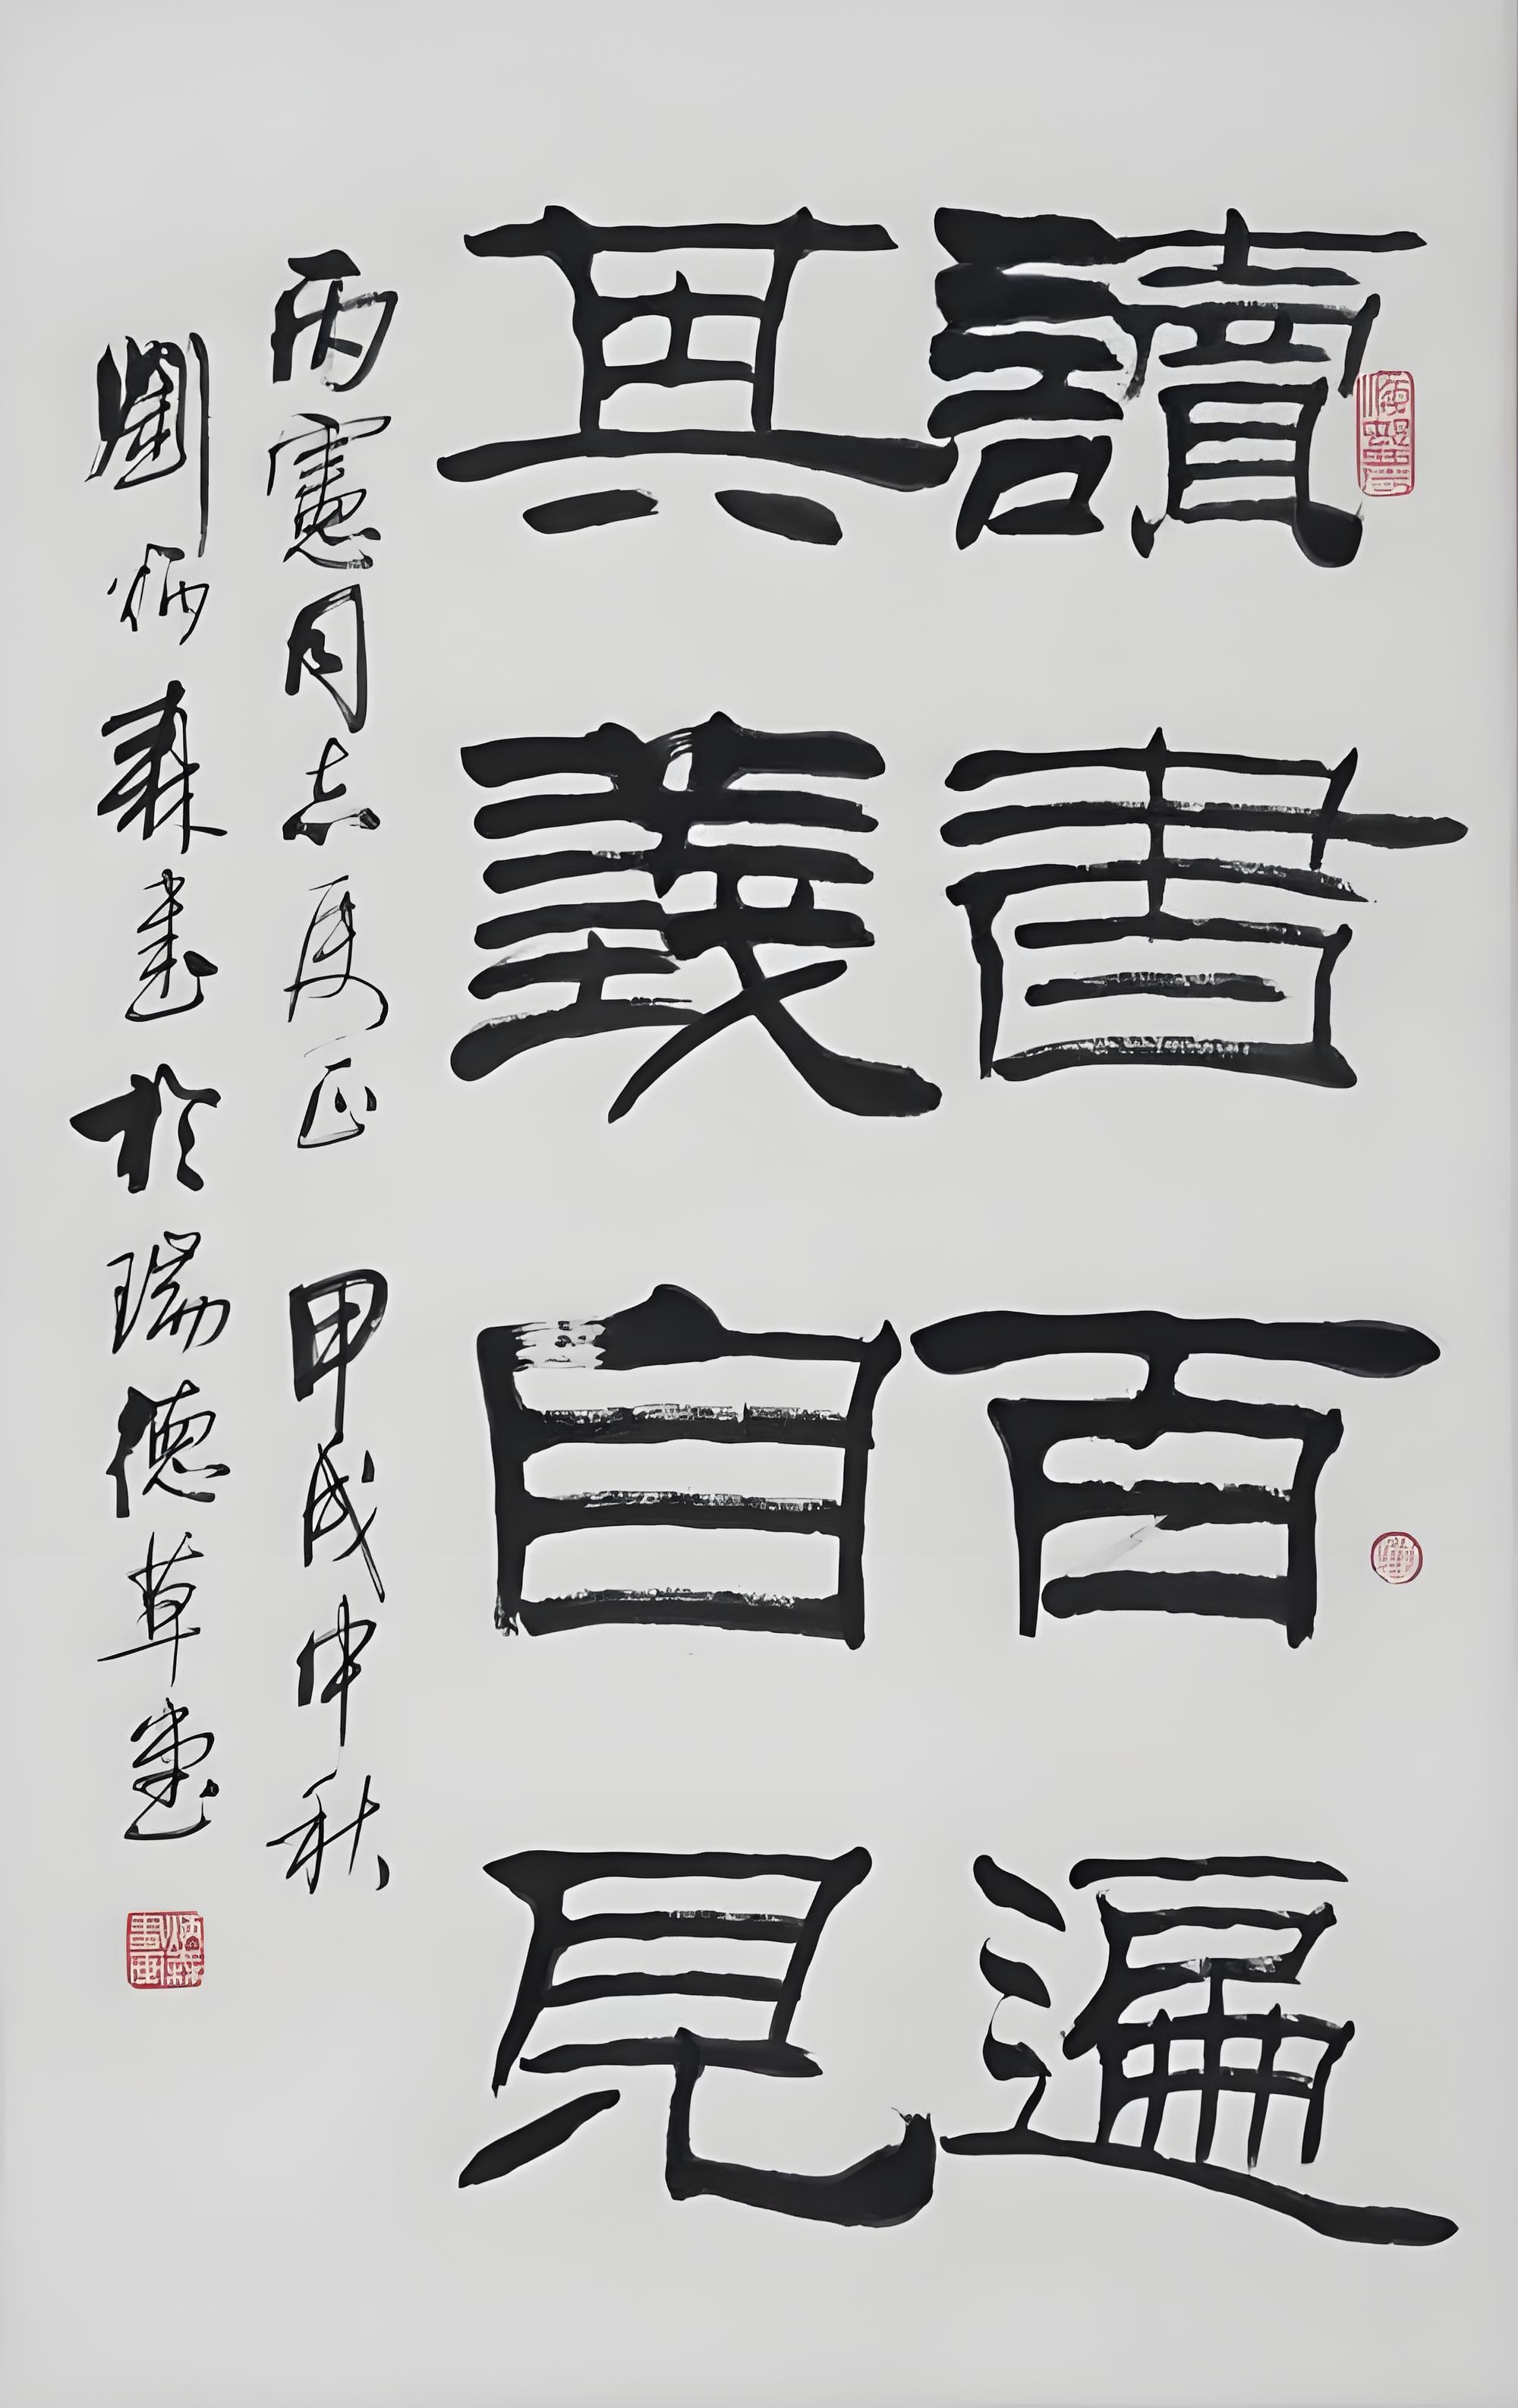 讀書百遍
其義自見
丙憲同志雅正 甲戌中秋
劉炳森書於瑞德草堂
炳森書画